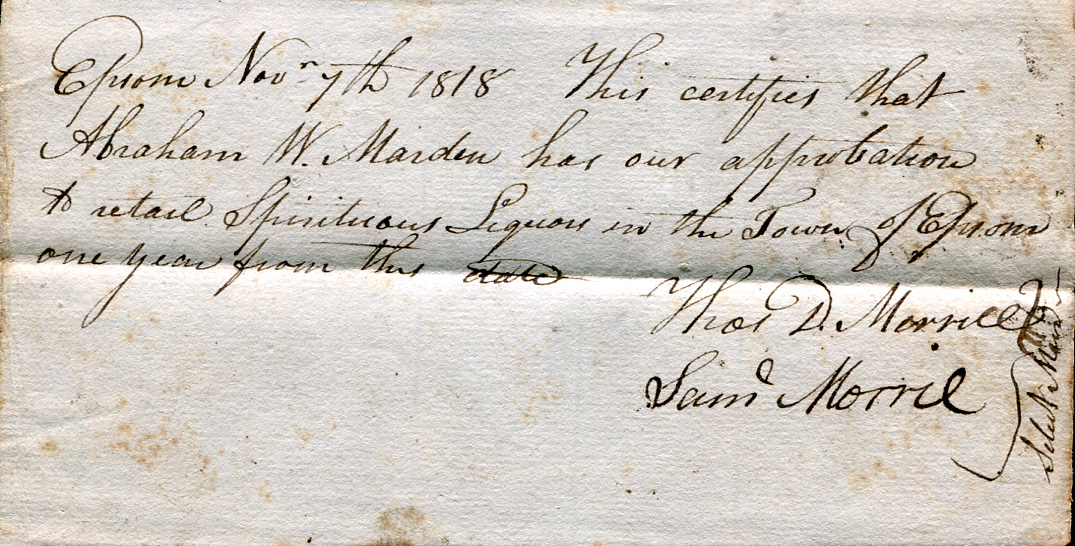 Epsom Novr 7th 1818 This certifies that
Abraham W. Marden has our approbation
to retail Spirituous Liquors in the Town of Epsom
one year from this date
Thos D. Morrill
Samd Morril
Select Men